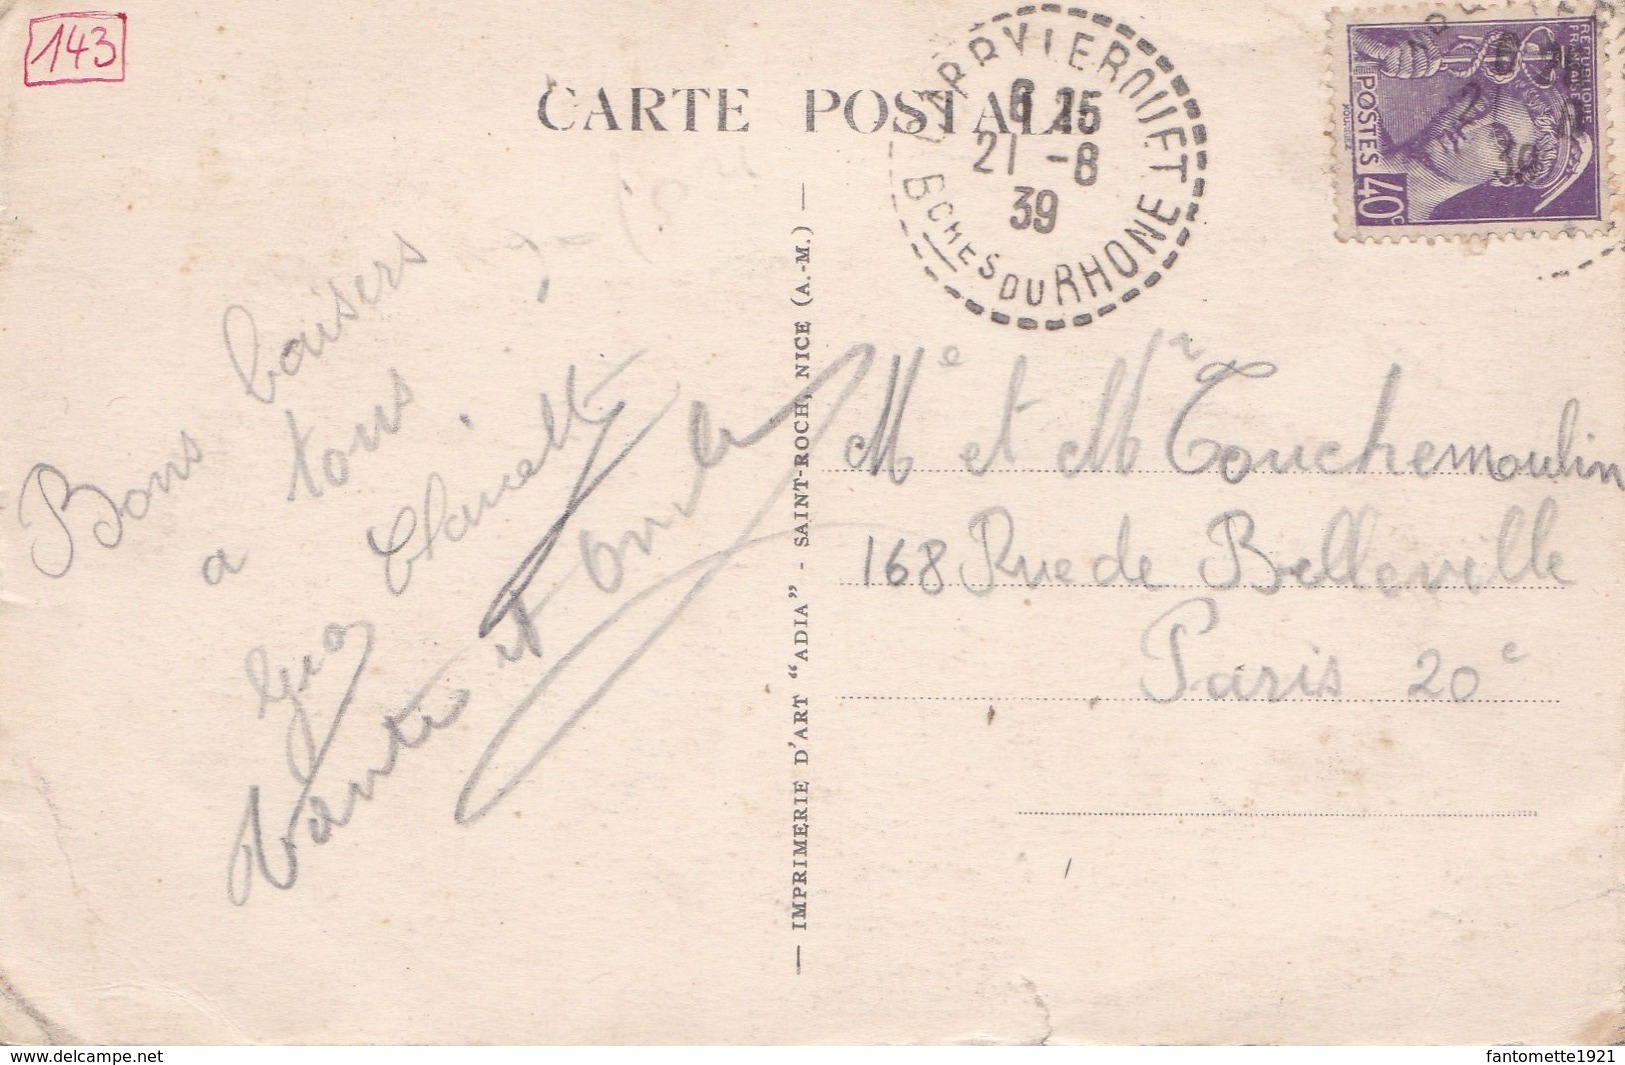 143
CARTE POSTALE
CARRY LE ROUET
6 15
21 -8
39
BCHES DU RHONE
REPUBLIQUE
FRANÇAISE
POSTES 40c
Bons baisers
a tous
Claude
Tante et
Me et Mr Touchemoulin
168 Rue de Belleville
Paris 20e
— IMPRIMERIE D'ART "ADIA" - SAINT-ROCH, NICE (A.-M.) —
www.delcampe.net
fantomette1921